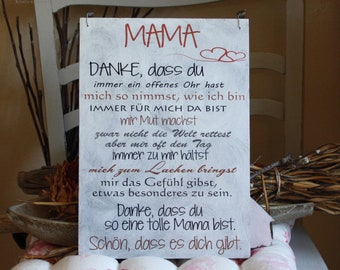 MAMA
DANKE, dass du
immer ein offenes Ohr hast
mich so nimmst, wie ich bin
IMMER FÜR MICH DA BIST
mir Mut machst
zwar nicht die Welt rettest
aber mir oft den Tag
immer zu mir hältst
mich zum Lachen bringst
mir das Gefühl gibst,
etwas besonderes zu sein.
Danke, dass du
so eine tolle Mama bist.
Schön, dass es dich gibt.